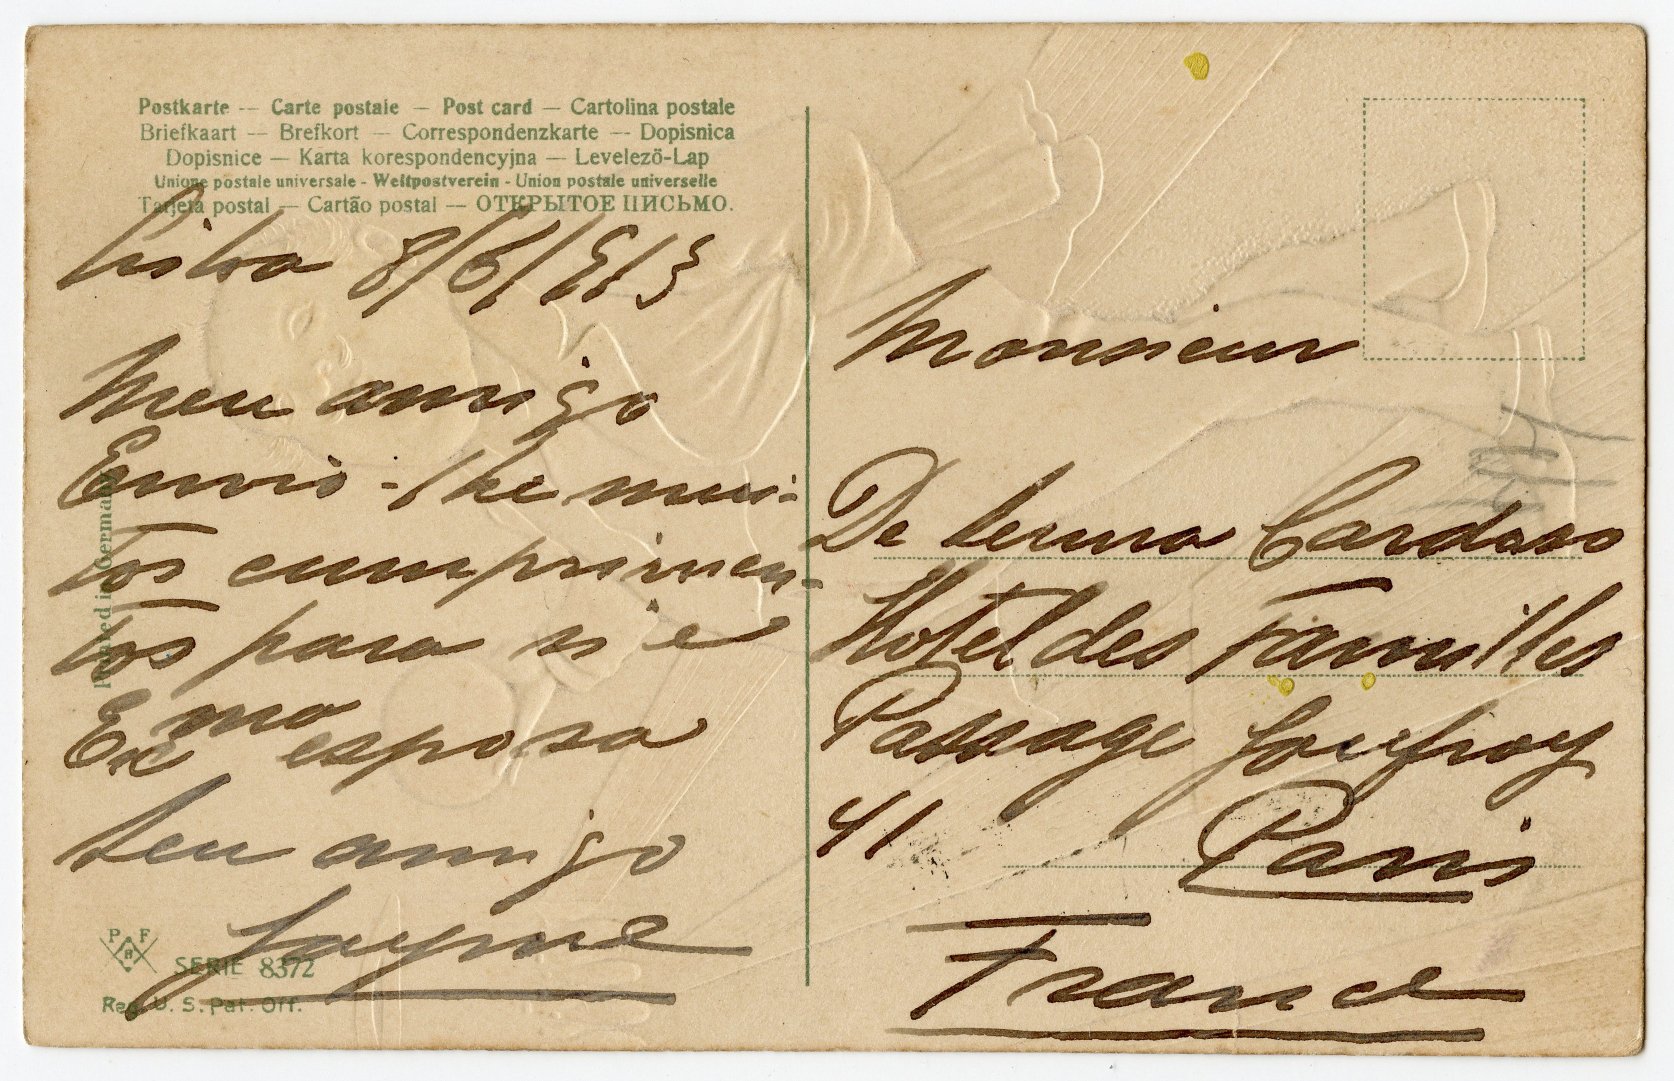 Postkarte -- Carte postale — Post card — Cartolina postale
Briefkaart — Brefkort — Correspondenzkarte — Dopisnica
Dopisnice — Karta korespondencyjna — Levelezö-Lap
Unione postale universale - Weltpostverein - Union postale universelle
Tarjeta postal — Cartão postal — ОТКРЫТОЕ ПИСЬМО.
Lisboa 8/6/913
Meu amigo
Envio-lhe mui-
tos cumprimen-
tos para si e
Exma esposa
Seu amigo
Jayme
Printed in Germany
P F
B
SERIE 8372
Reg. U. S. Pat. Off.
Monsieur
De Serna Cardoso
Hotel des Familles
Passage Jouffroy
41
Paris
France